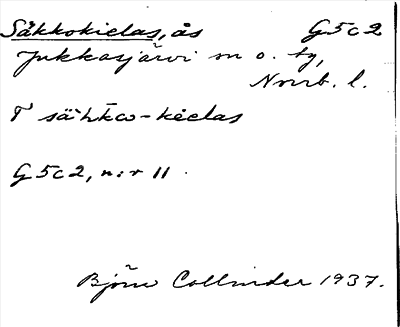 Säkkokielas, ås G5c2
Jukkasjärvi sn o. tg,
Norrb. l.
G5c2, n:r 11.
Björn Collinder 1937.